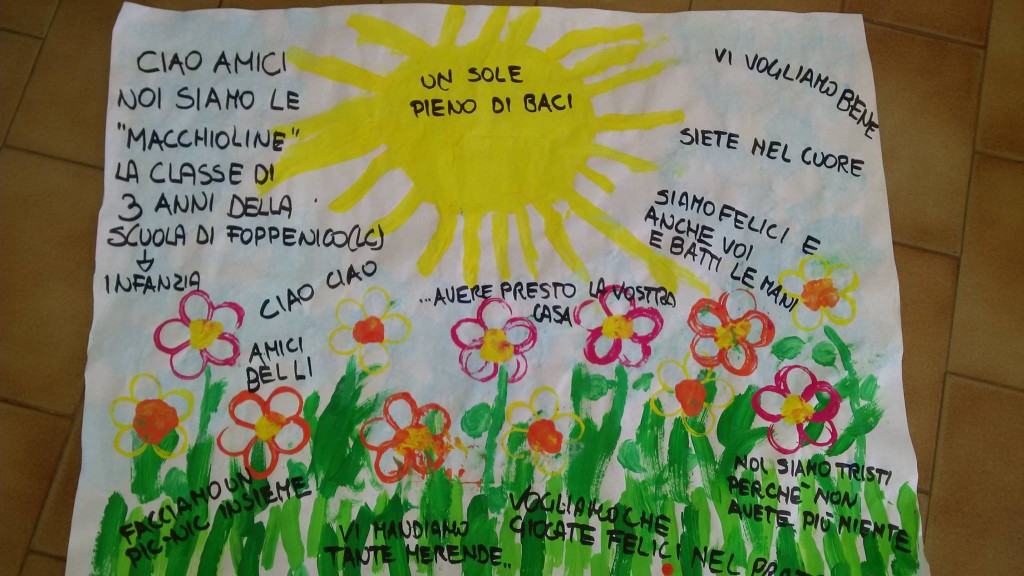 CIAO AMICI
NOI SIAMO LE
"MACCHIOLINE"
LA CLASSE DI
3 ANNI DELLA
SCUOLA DI FOPPENICO(LC)
INFANZIA
UN SOLE
PIENO DI BACI
VI VOGLIAMO BENE
SIETE NEL CUORE
SIAMO FELICI E
ANCHE VOI
E BATTI LE MANI
CIAO CIAO
...AVERE PRESTO LA VOSTRA
CASA
AMICI
BELLI
FACCIAMO UN
PIC-NIC INSIEME
VI MANDIAMO
TANTE MERENDE..
VOGLIAMO CHE
GIOCATE FELICI NEL
NOI SIAMO TRISTI
PERCHE' NON
AVETE PIÙ NIENTE